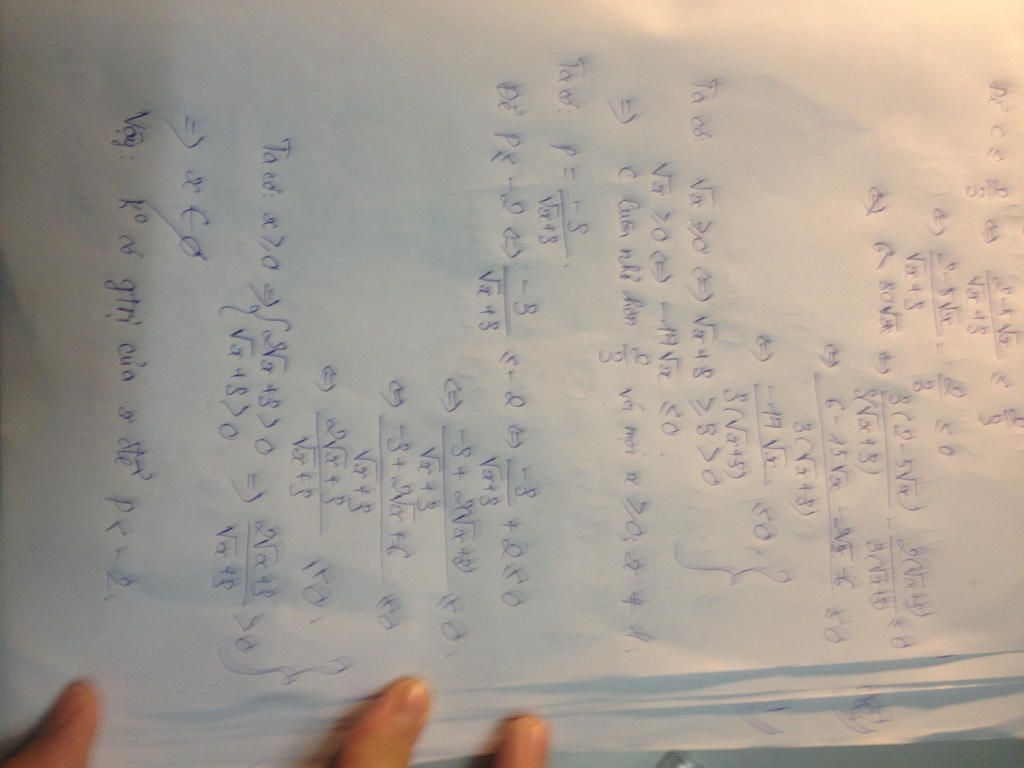 Để C ≤ 2/3 ⇔ (2 - 5√x)/(√x + 3) ≤ 2/3
⇔ (2 - 5√x)/(√x + 3) - 2/3 ≤ 0
⇔ 3(2 - 5√x)/3(√x + 3) - 2(√x + 3)/3(√x + 3) ≤ 0
⇔ (6 - 15√x - 2√x - 6)/3(√x + 3) ≤ 0
⇔ -17√x/3(√x + 3) ≤ 0.
Ta có: √x ≥ 0 ⇔ √x + 3 ≥ 3 > 0
√x ≥ 0 ⇔ -17√x ≤ 0.
⇒ C luôn nhỏ hơn 2/3 với mọi x ≥ 0, x ≠ 1.
Ta có: P = -3/(√x + 3).
Để P < -2 ⇔ -3/(√x + 3) < -2 ⇔ -3/(√x + 3) + 2 < 0
⇔ (-3 + 2(√x + 3))/(√x + 3) < 0.
⇔ (-3 + 2√x + 6)/(√x + 3) < 0
⇔ (2√x + 3)/(√x + 3) < 0.
Ta có: x ≥ 0 ⇒ { 2√x + 3 > 0
√x + 3 > 0 ⇒ (2√x + 3)/(√x + 3) > 0
⇒ x ∈ ∅
Vậy: k° có gtrị của x để P < -2.